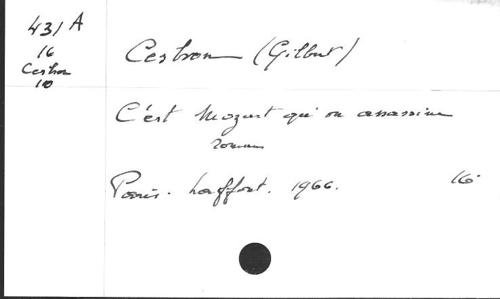 431 A
16
Cesbron
10
Cesbron (Gilbert)
C'est Mozart qu'on assassine
roman
Paris. Laffont. 1966. 16°